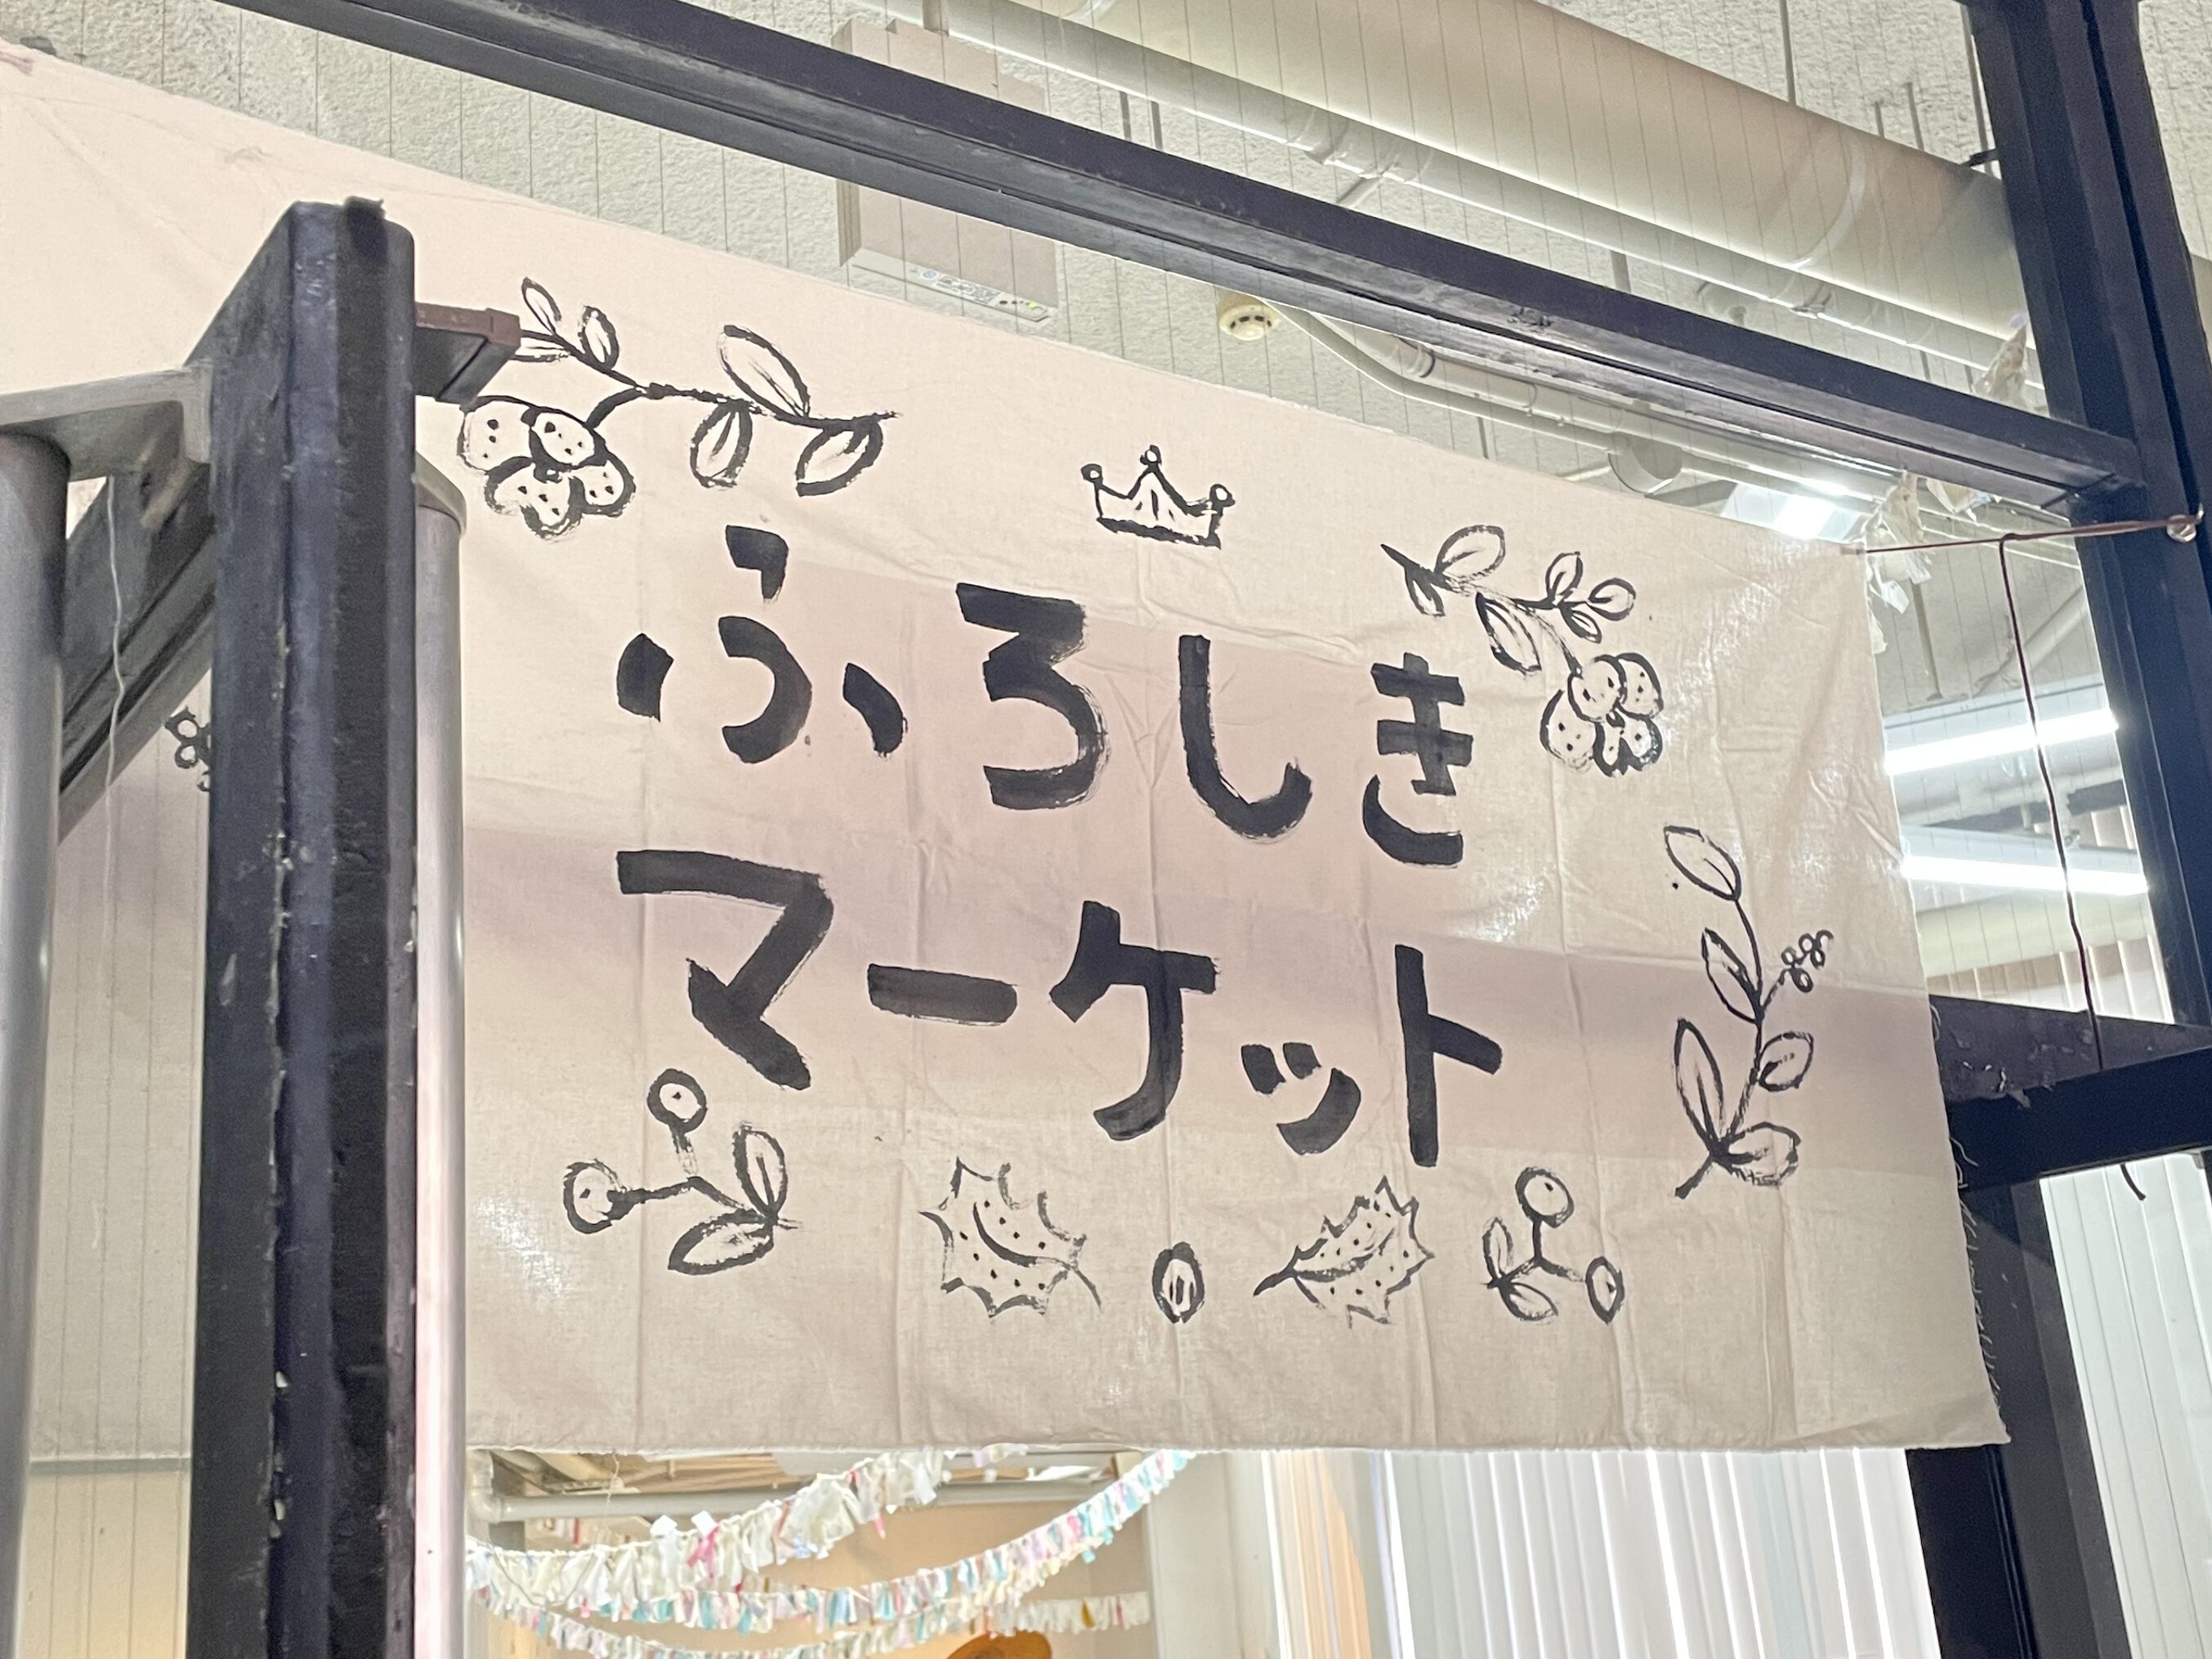 ふろしき
マーケット